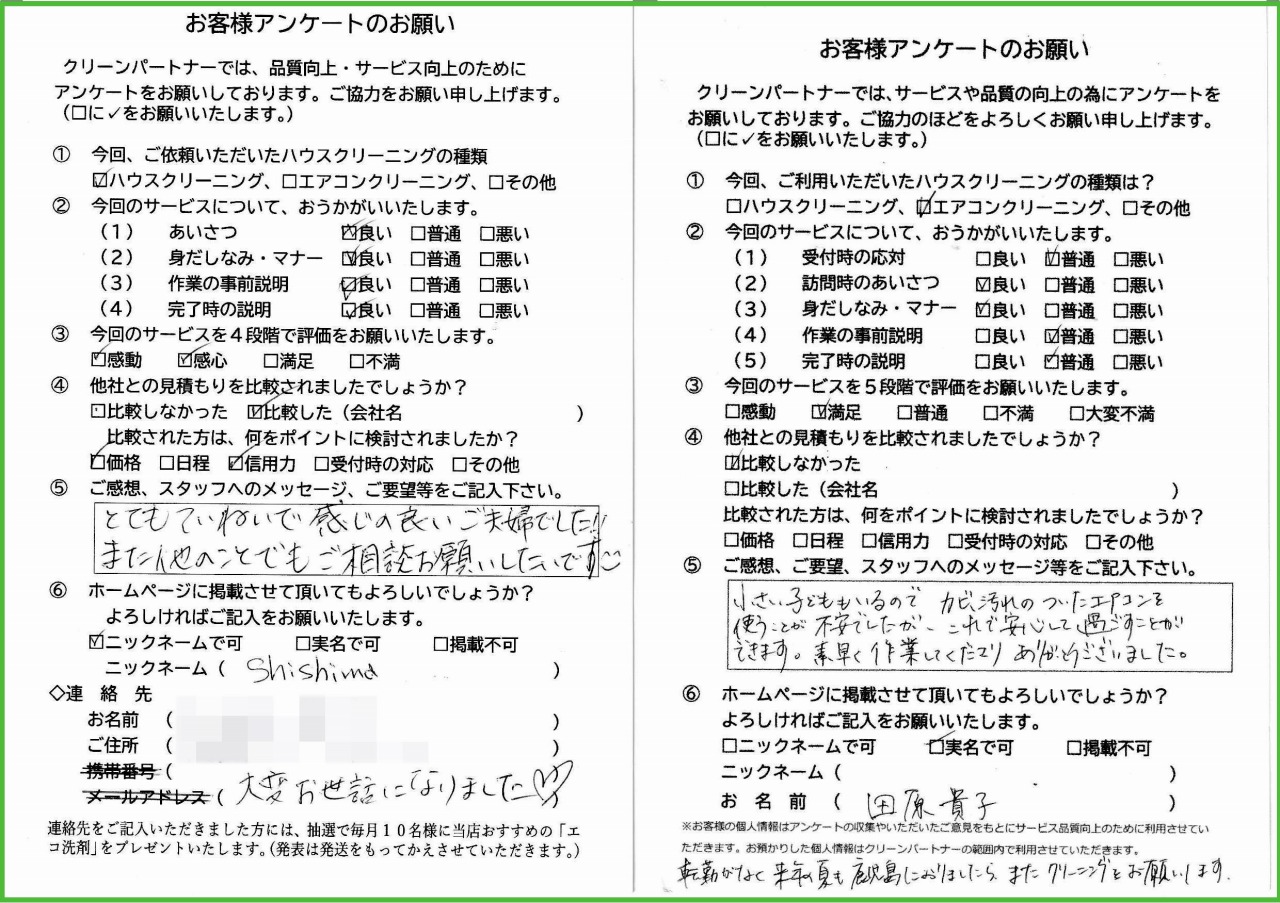 お客様アンケートのお願い
クリーンパートナーでは、品質向上・サービス向上のために
アンケートをお願いしております。ご協力をお願い申し上げます。
(□に✓をお願いいたします。)
① 今回、ご依頼いただいたハウスクリーニングの種類
☑ハウスクリーニング、□エアコンクリーニング、□その他
② 今回のサービスについて、おうかがいいたします。
(1) あいさつ ☑良い □普通 □悪い
(2) 身だしなみ・マナー ☑良い □普通 □悪い
(3) 作業の事前説明 ☑良い □普通 □悪い
(4) 完了時の説明 ☑良い □普通 □悪い
③ 今回のサービスを4段階で評価をお願いいたします。
☑感動 ☑感心 □満足 □不満
④ 他社との見積もりを比較されましたでしょうか?
□比較しなかった ☑比較した(会社名 )
比較された方は、何をポイントに検討されましたか?
☑価格 □日程 ☑信用力 □受付時の対応 □その他
⑤ ご感想、スタッフへのメッセージ、ご要望等をご記入下さい。
とてもていねいで感じの良いご夫婦でした!!
また他のことでもご相談お願いしたいです
⑥ ホームページに掲載させて頂いてもよろしいでしょうか?
よろしければご記入をお願いいたします。
☑ニックネームで可 □実名で可 □掲載不可
ニックネーム( Shishima )
◇連 絡 先
お名前 ( )
ご住所 ( )
携帯番号 (
メールアドレス ( 大変お世話になりました♡
連絡先をご記入いただきました方には、抽選で毎月10名様に当店おすすめの「エ
コ洗剤」をプレゼントいたします。(発表は発送をもってかえさせていただきます。)
お客様アンケートのお願い
クリーンパートナーでは、サービスや品質の向上の為にアンケートを
お願いしております。ご協力のほどをよろしくお願い申し上げます。
(□に✓をお願いいたします。)
① 今回、ご利用いただいたハウスクリーニングの種類は?
□ハウスクリーニング、☑エアコンクリーニング、□その他
② 今回のサービスについて、おうかがいいたします。
(1) 受付時の応対 □良い ☑普通 □悪い
(2) 訪問時のあいさつ ☑良い □普通 □悪い
(3) 身だしなみ・マナー ☑良い □普通 □悪い
(4) 作業の事前説明 □良い ☑普通 □悪い
(5) 完了時の説明 □良い ☑普通 □悪い
③ 今回のサービスを5段階で評価をお願いいたします。
□感動 ☑満足 □普通 □不満 □大変不満
④ 他社との見積もりを比較されましたでしょうか?
☑比較しなかった
□比較した(会社名 )
比較された方は、何をポイントに検討されましたでしょうか?
□価格 □日程 □信用力 □受付時の対応 □その他
⑤ ご感想、ご要望、スタッフへのメッセージ等をご記入下さい。
小さい子どももいるので カビ、汚れのついたエアコンを
使うことが不安でしたが、これで安心して過ごすことが
できます。素早く作業してくださり ありがとうございました。
⑥ ホームページに掲載させて頂いてもよろしいでしょうか?
よろしければご記入をお願いいたします。
□ニックネームで可 ☑実名で可 □掲載不可
ニックネーム( )
お 名 前 ( 田原貴子 )
※お客様の個人情報はアンケートの収集やいただいたご意見をもとにサービス品質向上のために利用させてい
ただきます。お預かりした個人情報はクリーンパートナーの範囲内で利用させていただきます。
転勤がなく 来年の夏も鹿児島におりましたら、またクリーニングをお願いします。